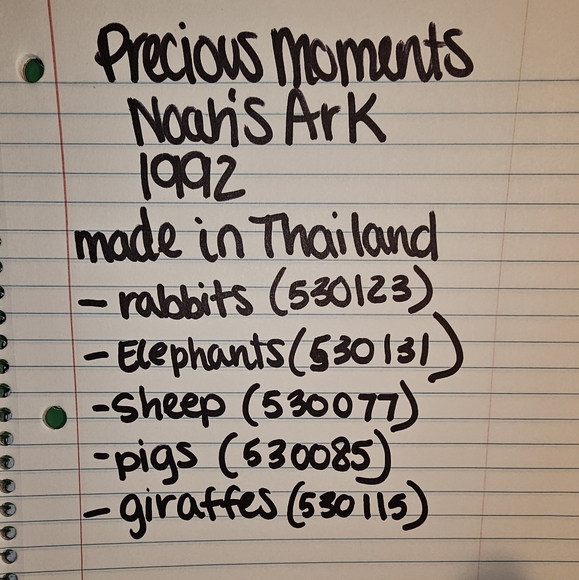 Precious Moments
Noah's Ark
1992
made in Thailand
- rabbits (530123)
- Elephants (530131)
- Sheep (530077)
- pigs (530085)
- giraffes (530115)